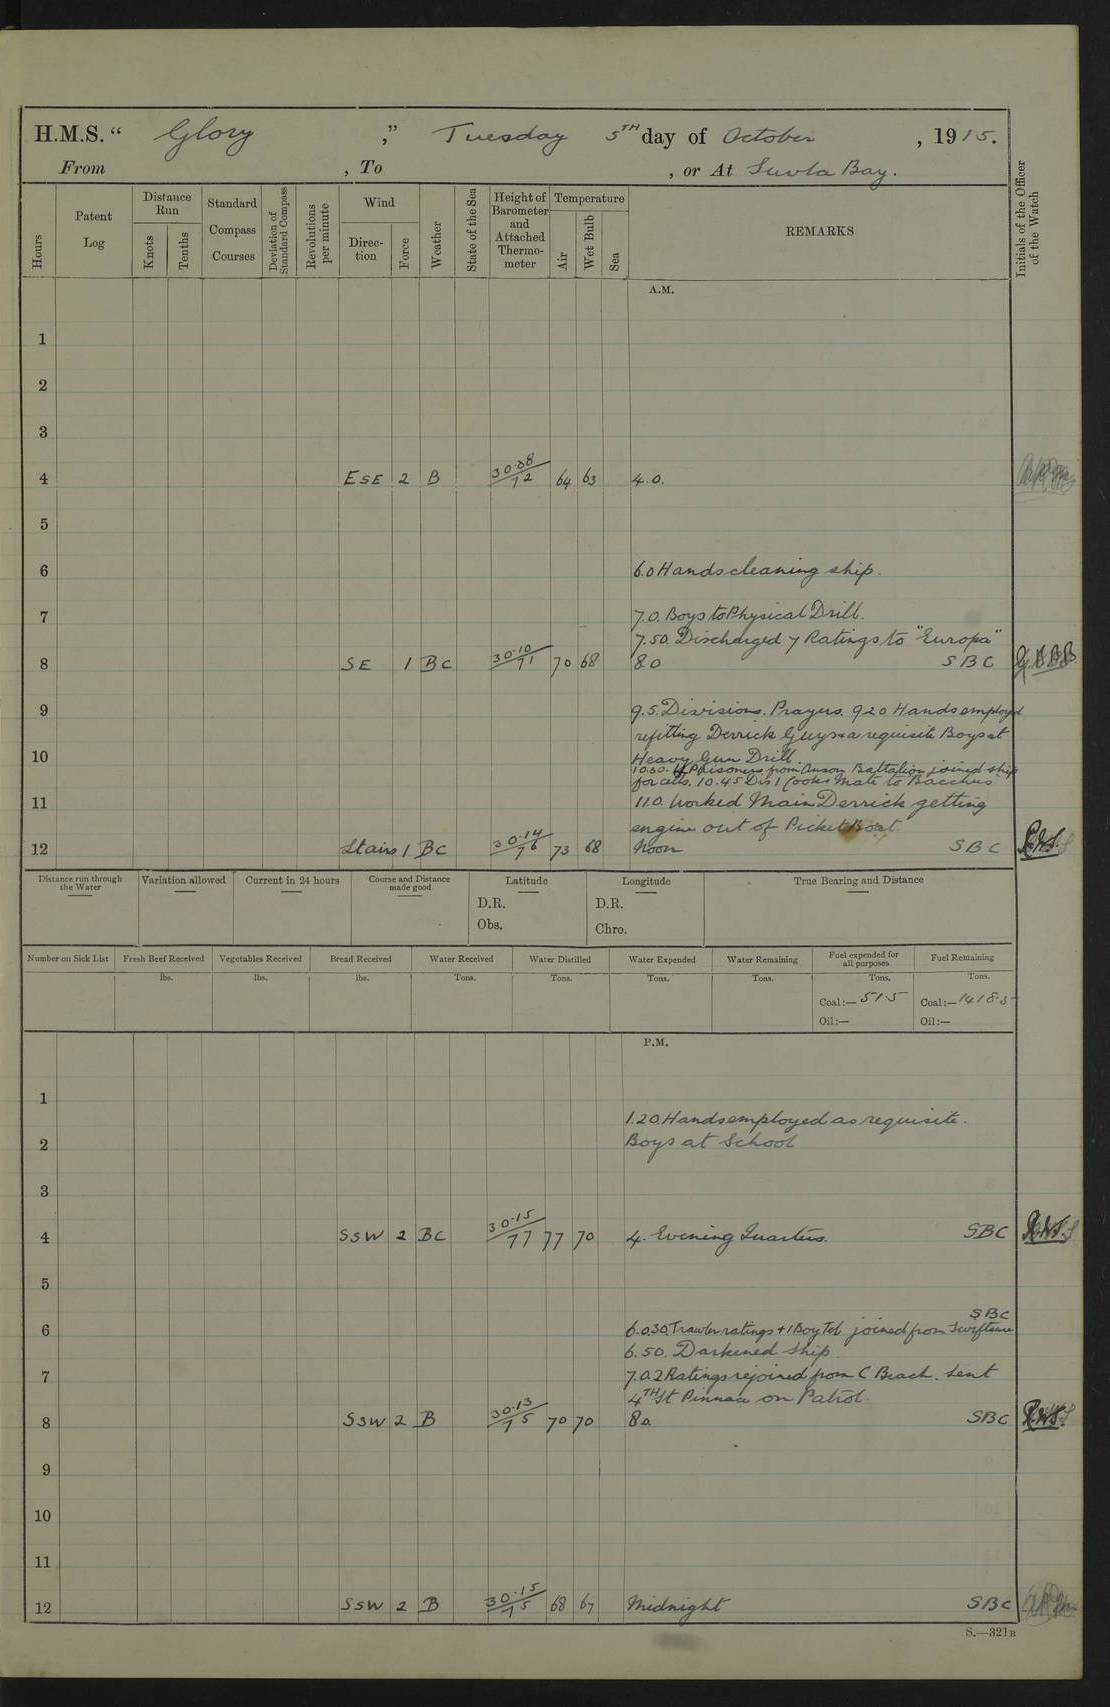 H.M.S. “ Glory ,” Tuesday 5TH day of October , 1915.
From , To , or At Suvla Bay.
Hours
Patent Log
Distance Run
Knots
Tenths
Standard Compass Courses
Deviation of Standard Compass
Revolutions per minute
Wind
Direction
Force
Weather
State of the Sea
Height of Barometer and Attached Thermometer
Temperature
Air
Wet Bulb
Sea
REMARKS
Initials of the Officer of the Watch
A.M.
1
2
3
4 ESE 2 B 30.08/72 64 63 4.0.
5
6 6.0 Hands cleaning ship.
7 7.0. Boys to Physical Drill.
7.50. Discharged 7 Ratings to "Europa"
8 SE 1 BC 30.10/71 70 68 8.0 SBC
9 9.5. Divisions. Prayers. 9.20 Hands employed
refitting Derrick Guys & a requisite Boys at
10 Heavy Gun Drill.
10.30. Prisoners from Anson Battalion joined ship
for cells. 10.45 Dis 1 Cooks Mate to Bacchus
11 11.0. Worked Main Derrick getting
engine out of Picket Boat
12 Stairs 1 BC 30.14/76 73 68 Noon SBC
Distance run through the Water
Variation allowed
Current in 24 hours
Course and Distance made good
Latitude
D.R.
Obs.
Longitude
D.R.
Chro.
True Bearing and Distance
Number on Sick List
Fresh Beef Received
lbs.
Vegetables Received
lbs.
Bread Received
lbs.
Water Received
Tons.
Water Distilled
Tons.
Water Expended
Tons.
Water Remaining
Tons.
Fuel expended for all purposes
Tons.
Coal:— 51.5
Oil:—
Fuel Remaining
Tons.
Coal:— 1418.5
Oil:—
P.M.
1
1.20. Hands employed as requisite.
2 Boys at School
3
4 SSW 2 BC 30.15/77 77 70 4. Evening Quarters. SBC
5
SBC
6 6.0. 30. Trawler ratings + 1 Boy Tel joined from Swiftsure
6.50. Darkened ship
7 7.0. 2 Ratings rejoined from C Beach. Sent
4TH St Pinnace on Patrol.
8 SSW 2 B 30.13/75 70 70 8.0 SBC
9
10
11
12 SSW 2 B 30.15/75 68 67 Midnight SBC
S.—321B